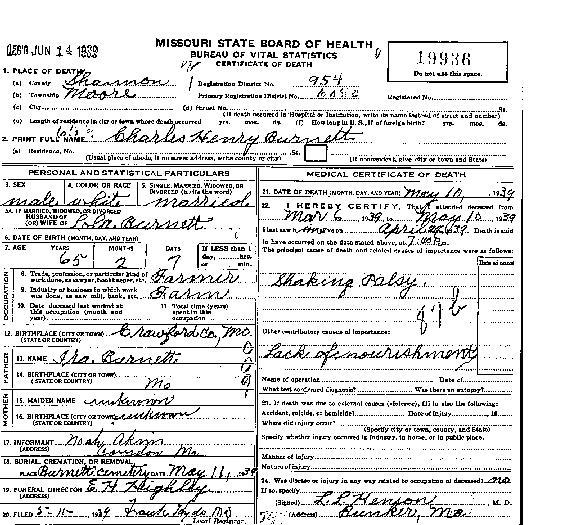 REC'D JUN 14 1939
MISSOURI STATE BOARD OF HEALTH
BUREAU OF VITAL STATISTICS
CERTIFICATE OF DEATH
19936
Do not use this space.
1. PLACE OF DEATH
(a) County Shannon Registration District No. 954
(b) Township Moore Primary Registration District No. Registered No.
(c) City (d) Street No. St.
(If death occurred in Hospital or Institution, write its name instead of street and number)
(e) Length of residence in city or town where death occurred yrs. mos. ds. (f) How long in U. S., if of foreign birth? yrs. mos. ds.
2. PRINT FULL NAME Charles Henry Burnett
(a) Residence, No. St.
(Usual place of abode, if no street address, write county or city) (If nonresident, give city or town and State)
PERSONAL AND STATISTICAL PARTICULARS
3. SEX 4. COLOR OR RACE 5. SINGLE, MARRIED, WIDOWED, OR DIVORCED (write the word)
male white married
5A. IF MARRIED, WIDOWED, OR DIVORCED
HUSBAND OF
(OR) WIFE OF Burnett
6. DATE OF BIRTH (MONTH, DAY, AND YEAR)
7. AGE YEARS MONTHS DAYS If LESS than 1 day, hrs. or min.
65 2 7
OCCUPATION
8. Trade, profession, or particular kind of work done, as sawyer, bookkeeper, etc. Farmer
9. Industry or business in which work was done, as saw mill, bank, etc. Farm
10. Date deceased last worked at this occupation (month and year) 11. Total time (years) spent in this occupation
12. BIRTHPLACE (CITY OR TOWN) Crawford Co, Mo.
(STATE OR COUNTRY)
FATHER
13. NAME Ira Burnett
14. BIRTHPLACE (CITY OR TOWN)
(STATE OR COUNTRY) Mo
MOTHER
15. MAIDEN NAME unknown
16. BIRTHPLACE (CITY OR TOWN) unknown
(STATE OR COUNTRY)
17. INFORMANT Noah
(ADDRESS) Mo
18. BURIAL, CREMATION, OR REMOVAL
PLACE Burnett cemetery DATE May 11, 1939
19. FUNERAL DIRECTOR E H
(ADDRESS)
20. FILED 5-11- 1939
Local Registrar
MEDICAL CERTIFICATE OF DEATH
21. DATE OF DEATH (MONTH, DAY, AND YEAR) May 10, 1939
22. I HEREBY CERTIFY, That I attended deceased from
Mar 6 1939, to May 10 1939
I last saw him alive on April 1939. Death is said
to have occurred on the date stated above, at
The principal cause of death and related causes of importance were as follows:
Date of onset
Shaking Palsy.
87b
Other contributory causes of importance:
Lack of nourishment
Name of operation Date of
What test confirmed diagnosis? Was there an autopsy?
23. If death was due to external causes (violence), fill in also the following:
Accident, suicide, or homicide? Date of injury 19
Where did injury occur?
(Specify city or town, county, and State)
Specify whether injury occurred in industry, in home, or in public place.
Manner of injury
Nature of injury
24. Was disease or injury in any way related to occupation of deceased? no
If so, specify
(Signed) L L Henson M. D.
(Address) Bunker, Mo.